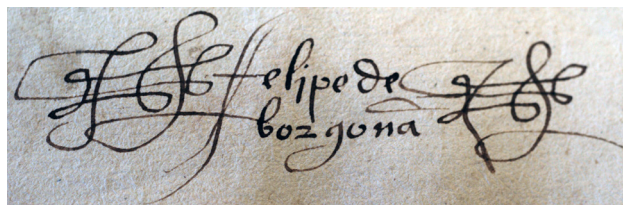 felipe de
borgoña